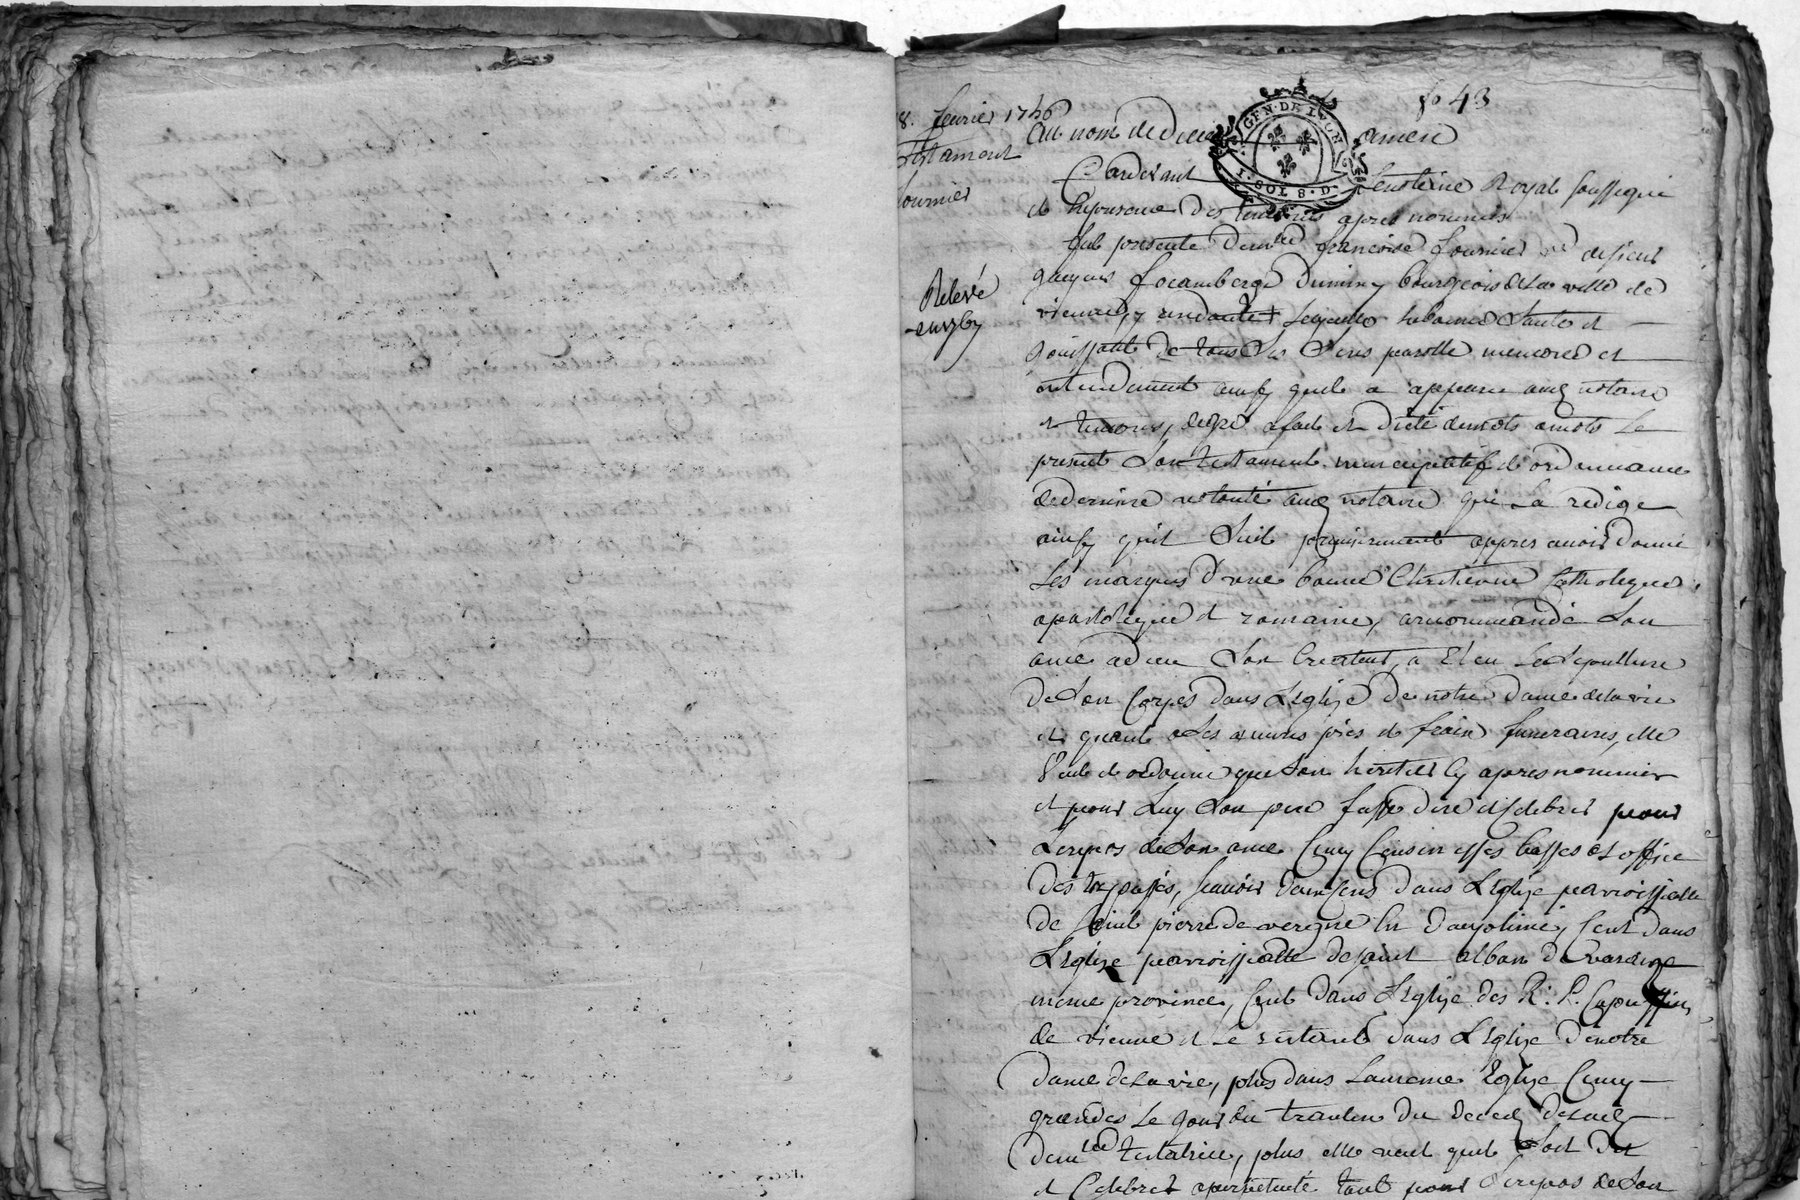 fo 43
8. fevrier 1746
Testament
fournier
Relevé
GEN. DE LYON
1. SOL 8. D.
Au nom de Dieu amen
Pardevant Le notaire Royal soussigné
et En presence des temoins apres nommés
fut presente Dem.lle françoise fournier v.e de sieur
Jacques bourgeois de La ville de
vienne, y residante Laquelle Saine et
jouissant de tous Ses Sens parolle memoire et
entendement ainsy quil a apparu aud notaire
et temoins, degré a fait et dicté demots amots Le
present Son testament nuncupatif et ordonnance
dederniere volonté aud notaire qui La redigé
ainsy quil Suit premierement appres avoir donné
Les marques d'une bonne Chretienne Catholique,
apostolique et romaine, arecommandé Son
ame adieu Son Createur, a Eleu La Sepulture
deSon Corps dans Leglize de notre dame delavie
et quant a Ses œuvres pies et frais funeraires, elle
Veut et ordonne que Son heritier Cy apres nommé
et pour Luy Son pere fasse dire et Celebrer pour
Lerepos de Son ame Cinq Cens messes basses et office
des trepassés, scavoir dans Leglize parroissialle
de Saint pierre de en dauphiné, Cent dans
Leglize parroissialle de Saint alban de
meme province, Cent dans Leglize des R. P. Capucins
de vienne et Le restant dans Leglize de notre
dame de La vie, plus dans La meme Eglize Cinq
grandes Le jour ou du deced de lad
dem.lle testatrice, plus elle veut quil Soit dit
et Celebré aperpetuité tant pour Le repos de Son